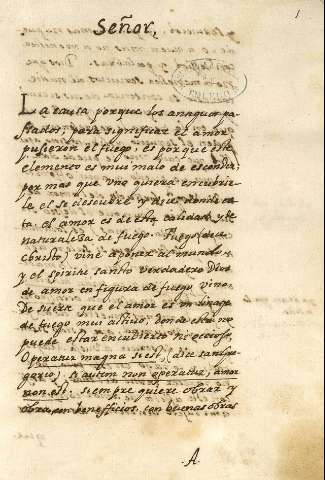 1
Señor,
La causa porque los antiguos pa-
ssados, para significar el amor
pusieron el fuego, es porque este
elemento es muy malo de esconder
por mas que uno quiera encubrir-
le el se descubre y dize donde es-
ta. el amor es de esta calidad y de
naturaleza de fuego. Fuego (dice
christo) vine a poner al mundo
y el spiritu santo verdadero Dios
de amor en figura de fuego vino.
De suerte que el amor es
de fuego muy activo, donde esta no
puede estar encubierto ni occioso.
Operatur magna si est, (dice san Gre-
gorio) si autem non operatur, amor
non est. siempre quiere obrar y
obra en beneficios, con buenas obras
A